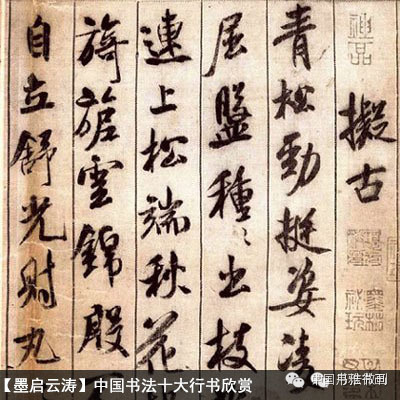 擬古
青松勁挺姿凌
屈盤種〻出枝
連上松端秋花
旖旎雲錦殷
自立舒光射丸
【墨启云涛】中国书法十大行书欣赏